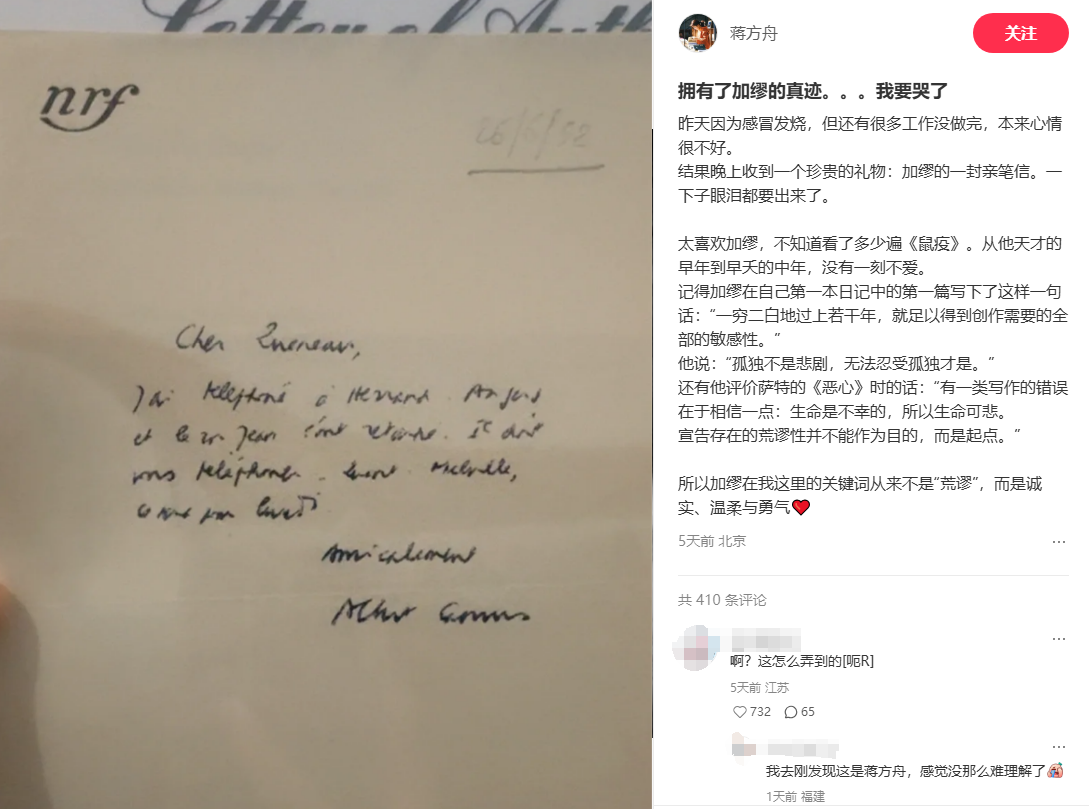 Letter of Auth
nrf
Cher Queneau,
J'ai téléphoné à
et le
vous téléphoner.
Amicalement
Albert Camus
蒋方舟
关注
拥有了加缪的真迹。。。我要哭了
昨天因为感冒发烧，但还有很多工作没做完，本来心情
很不好。
结果晚上收到一个珍贵的礼物：加缪的一封亲笔信。一
下子眼泪都要出来了。
太喜欢加缪，不知道看了多少遍《鼠疫》。从他天才的
早年到早夭的中年，没有一刻不爱。
记得加缪在自己第一本日记中的第一篇写下了这样一句
话：“一穷二白地过上若干年，就足以得到创作需要的全
部的敏感性。”
他说：“孤独不是悲剧，无法忍受孤独才是。”
还有他评价萨特的《恶心》时的话：“有一类写作的错误
在于相信一点：生命是不幸的，所以生命可悲。
宣告存在的荒谬性并不能作为目的，而是起点。”
所以加缪在我这里的关键词从来不是“荒谬”，而是诚
实、温柔与勇气❤️
5天前 北京
共 410 条评论
啊？这怎么弄到的[呃R]
5天前 江苏
732 65
我去刚发现这是蒋方舟，感觉没那么难理解了
1天前 福建